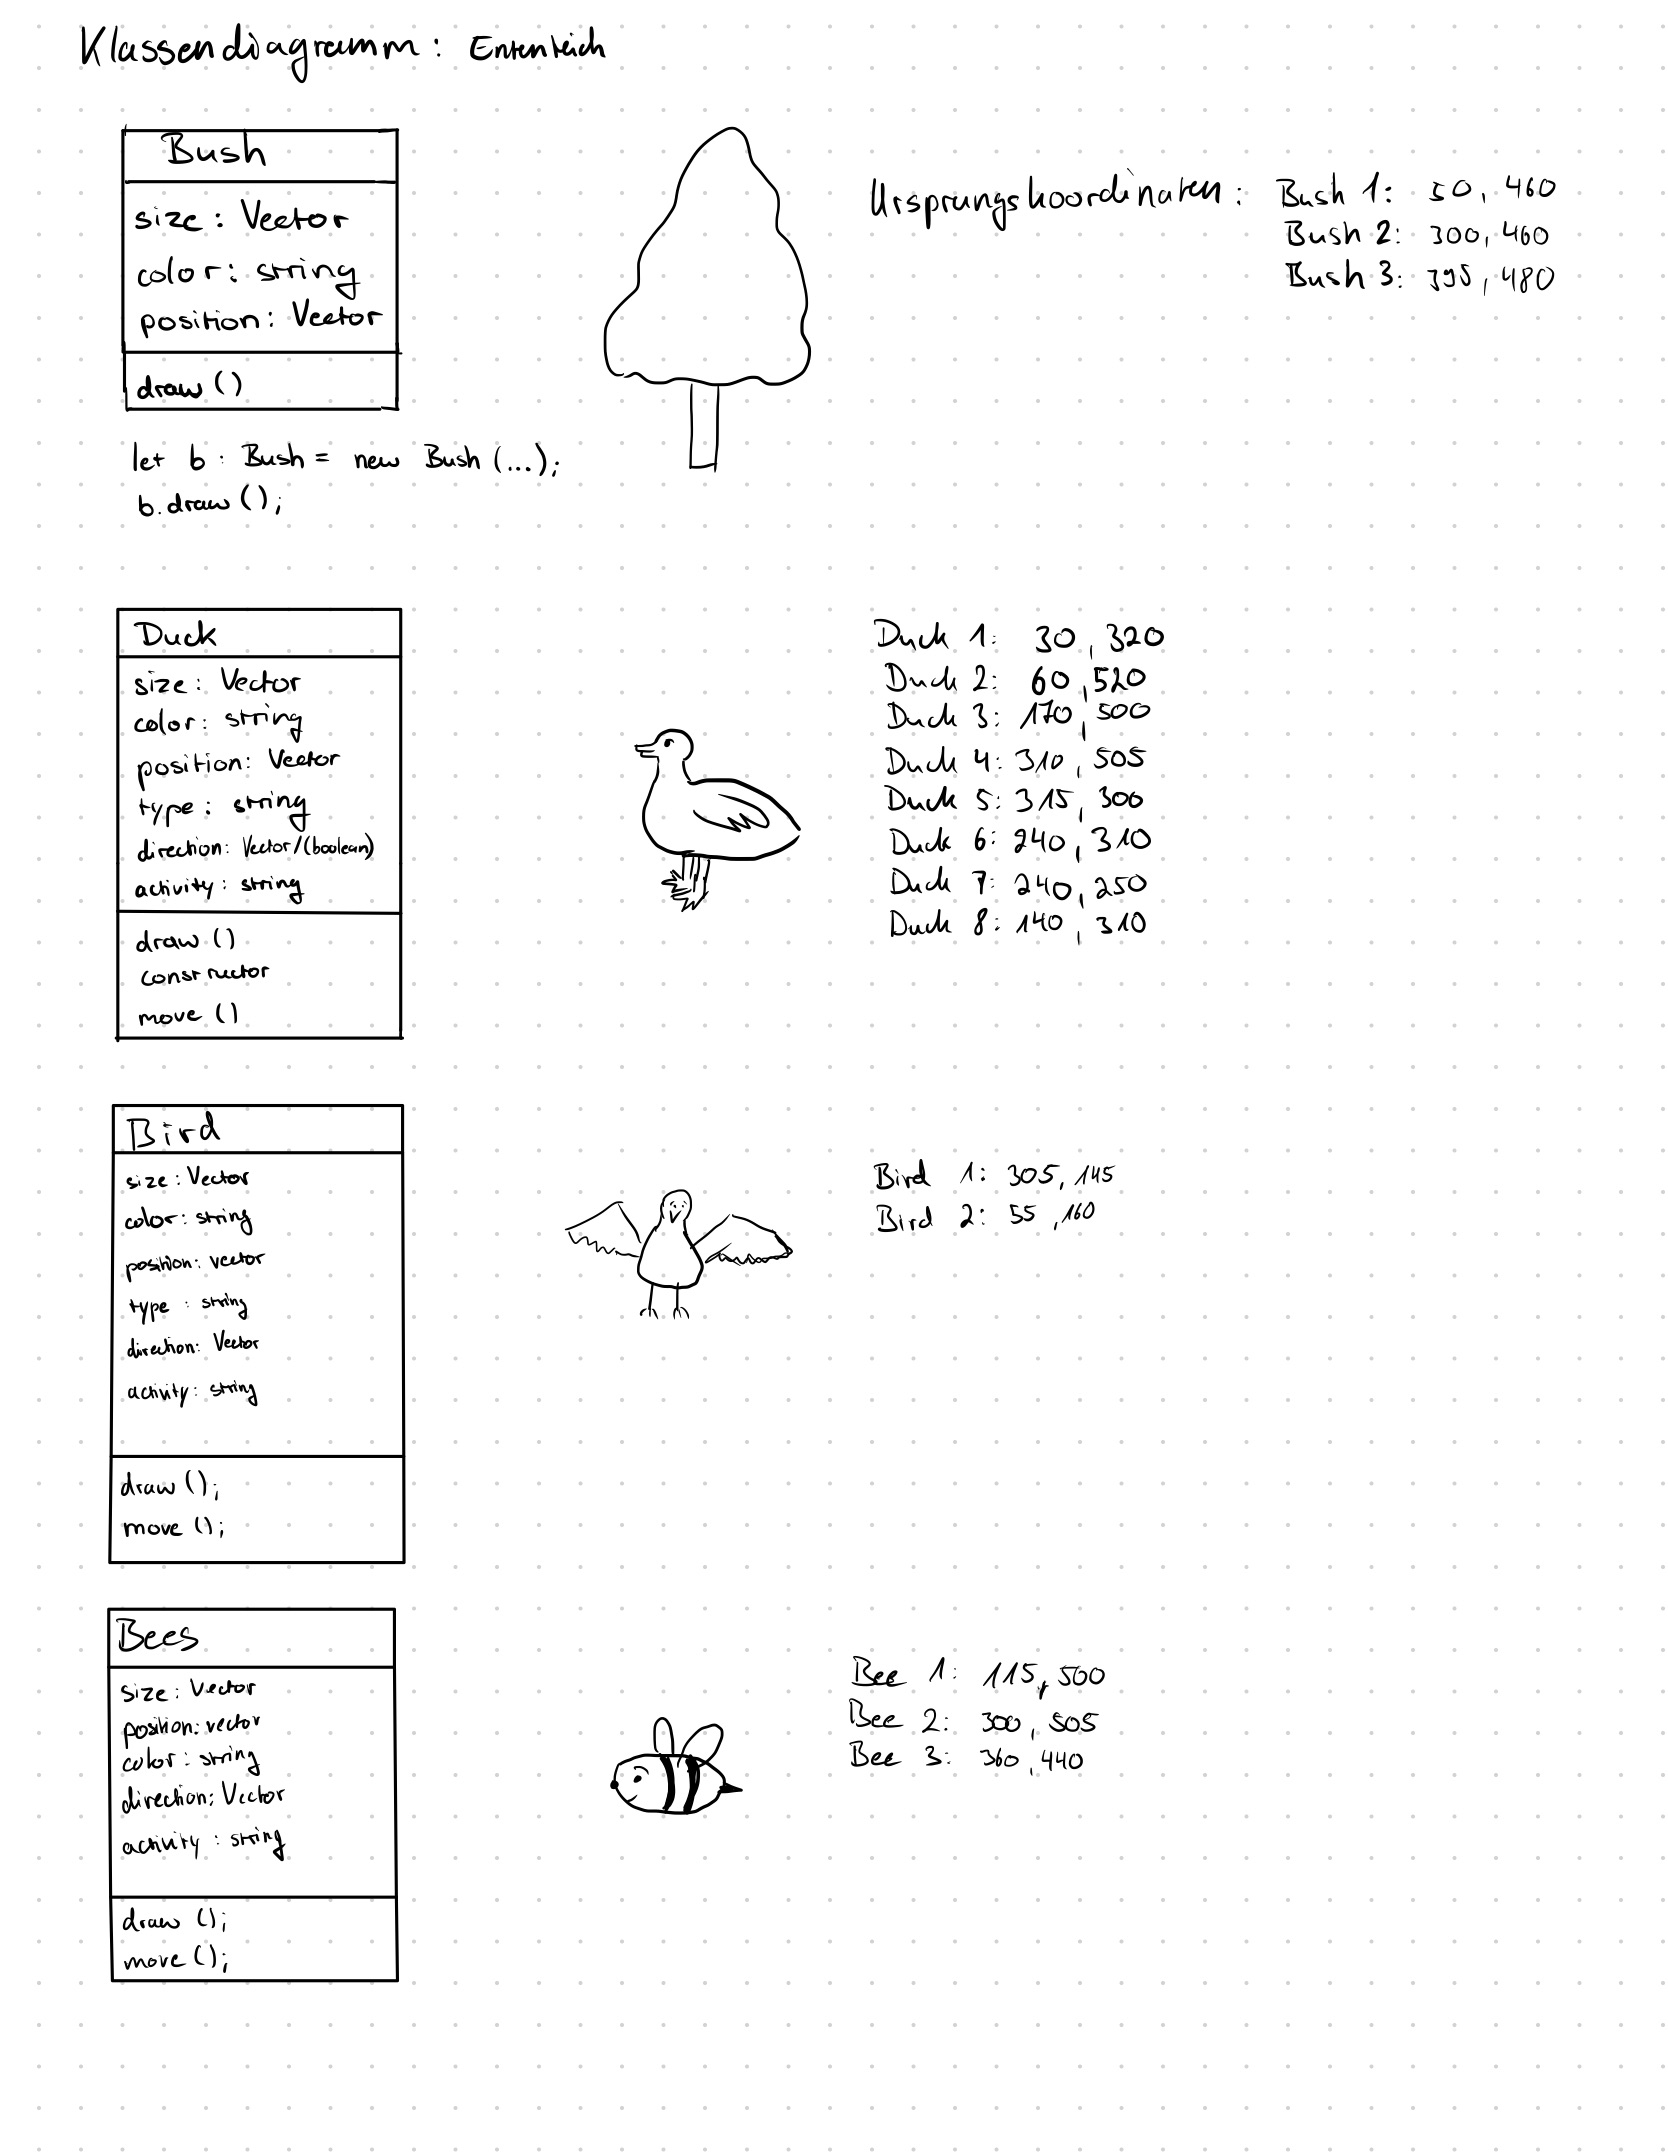 Klassendiagramm: Ententeich
Bush
size: Vector
color: string
position: Vector
draw ()
let b : Bush = new Bush (...);
b.draw ();
Ursprungskoordinaten: Bush 1: 50, 460
Bush 2: 300, 460
Bush 3: 395, 480
Duck
size: Vector
color: string
position: Vector
type: string
direction: Vector/(boolean)
activity: string
draw ()
constructor
move ()
Duck 1: 30, 320
Duck 2: 60, 520
Duck 3: 170, 500
Duck 4: 310, 505
Duck 5: 315, 300
Duck 6: 240, 310
Duck 7: 240, 250
Duck 8: 140, 310
Bird
size: Vector
color: string
position: vector
type : string
direction: Vector
activity: string
draw ();
move ();
Bird 1: 305, 145
Bird 2: 55, 160
Bees
size: Vector
position: vector
color: string
direction: Vector
activity : string
draw ();
move ();
Bee 1: 115, 500
Bee 2: 300, 505
Bee 3: 360, 440